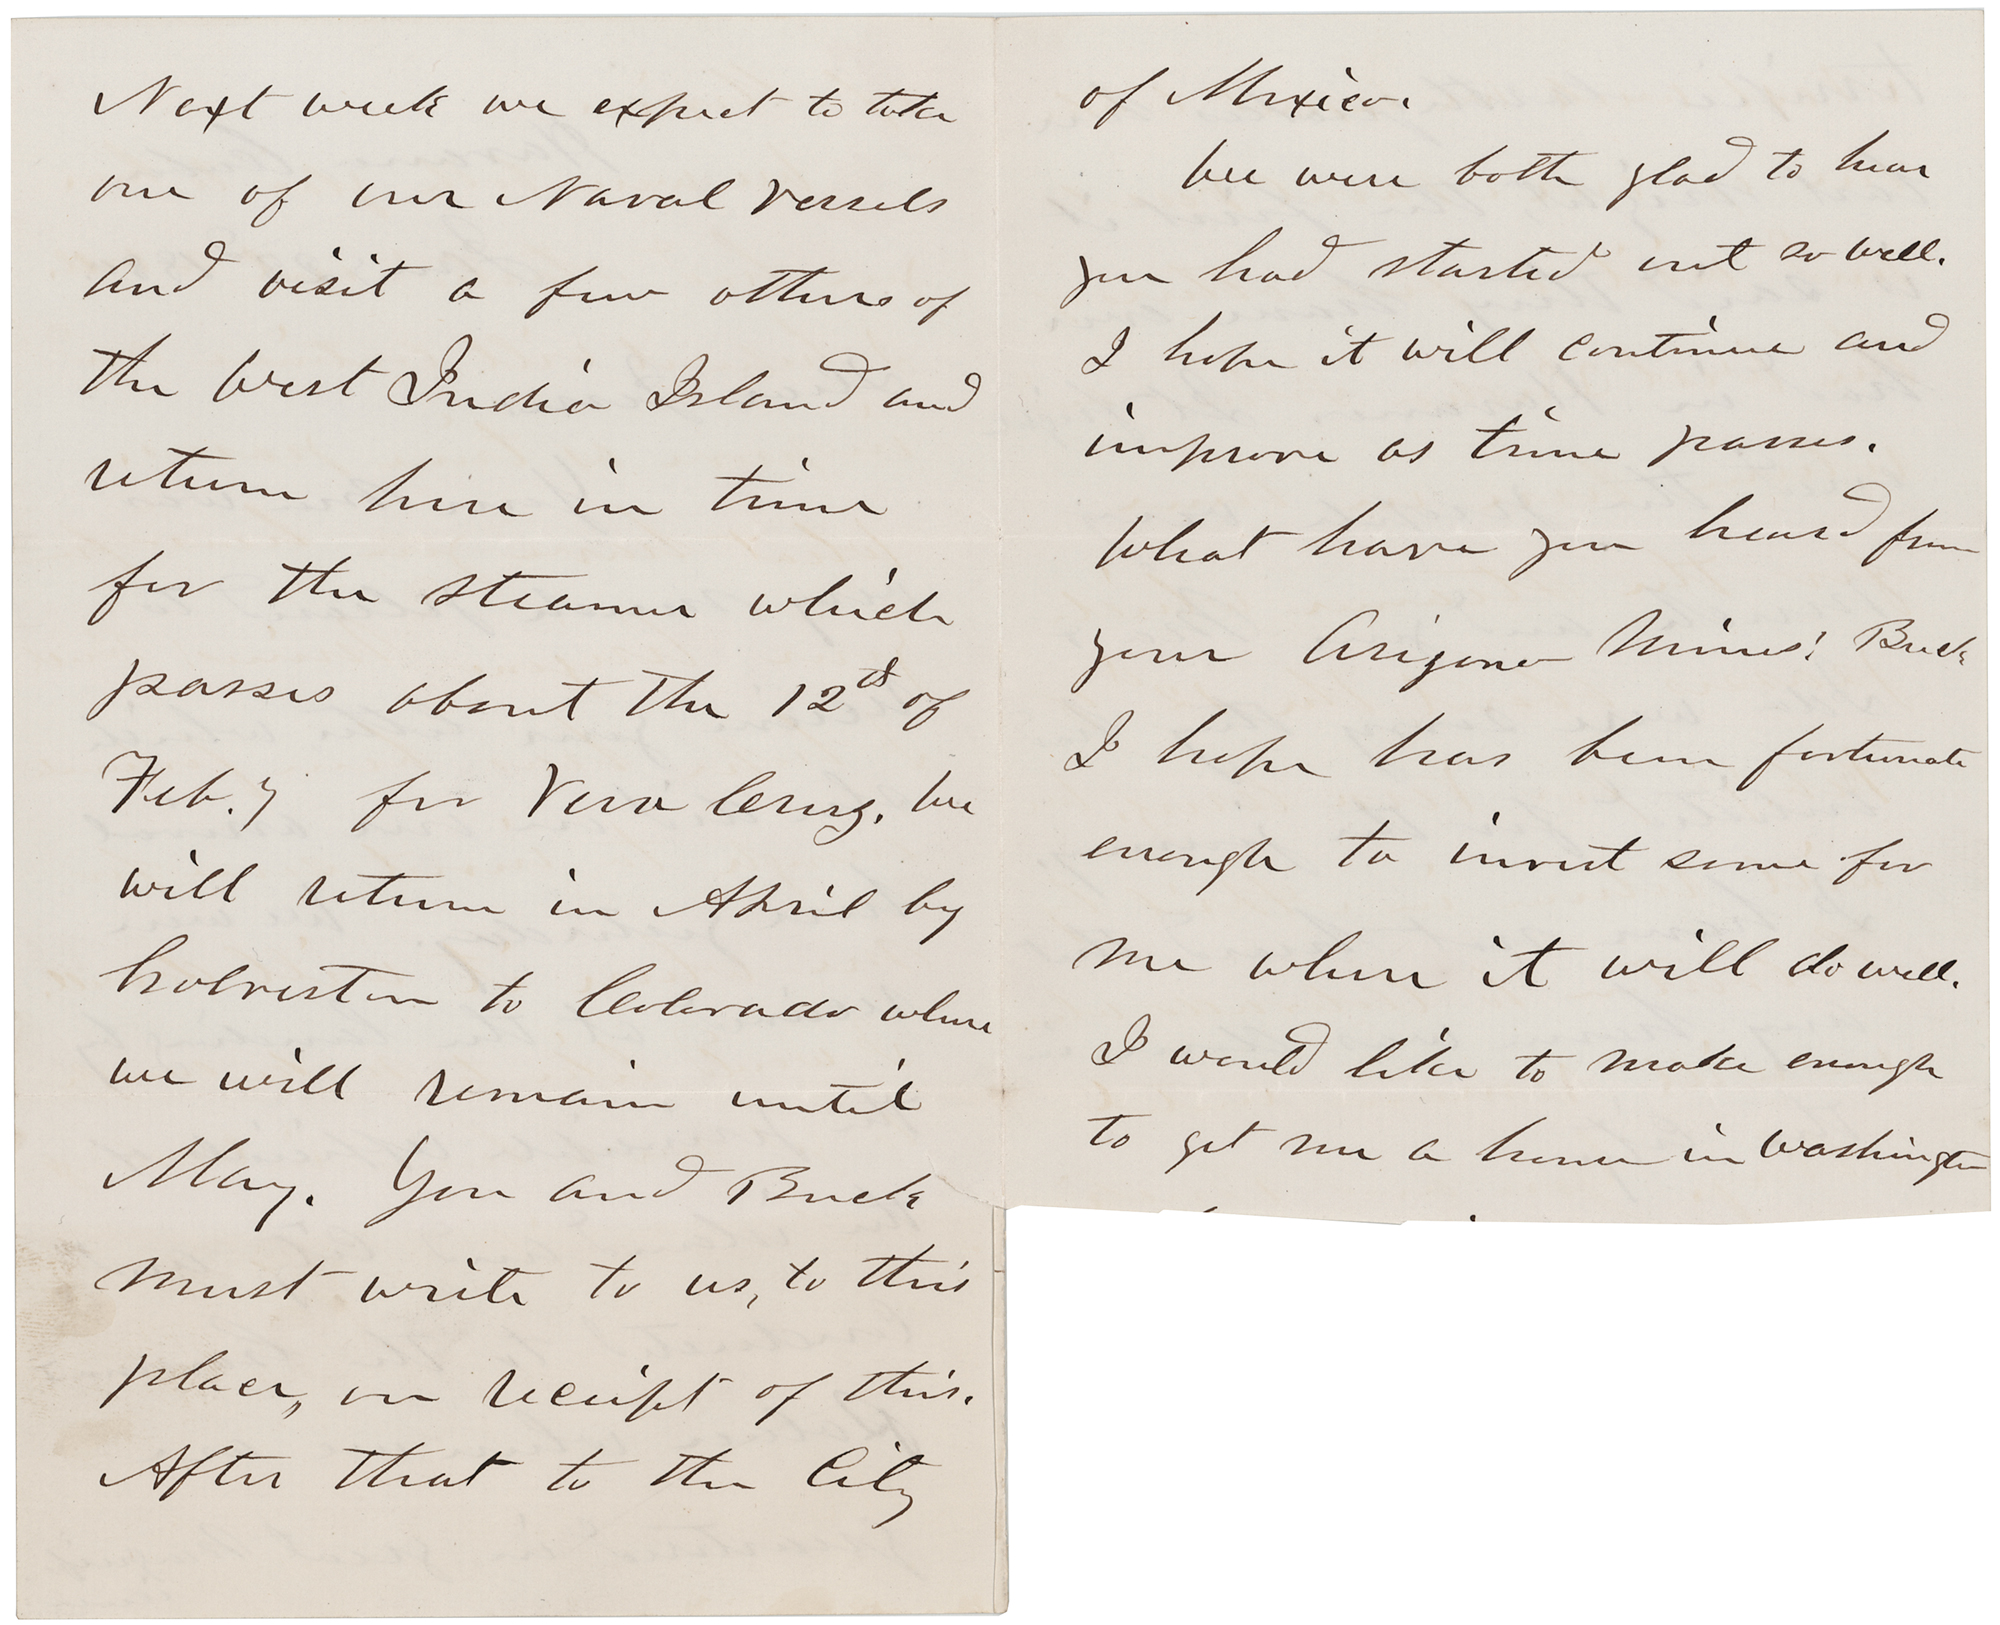 Next week we expect to take
one of our Naval Vessels
and visit a few others of
the West India Island and
return here in time
for the steamer which
passes about the 12th of
Feb.y for Vera Cruz. We
will return in April by
Galveston to Colorado where
we will remain until
May. You and Buck
must write to us, to this
place, on receipt of this.
After that to the City
of Mexico.
We were both glad to hear
you had started out so well.
I hope it will continue and
improve as time passes.
What have you heard from
your Arizona Mines? Buck
I hope has been fortunate
enough to invest some for
me where it will do well.
I would like to make enough
to get me a home in Washington